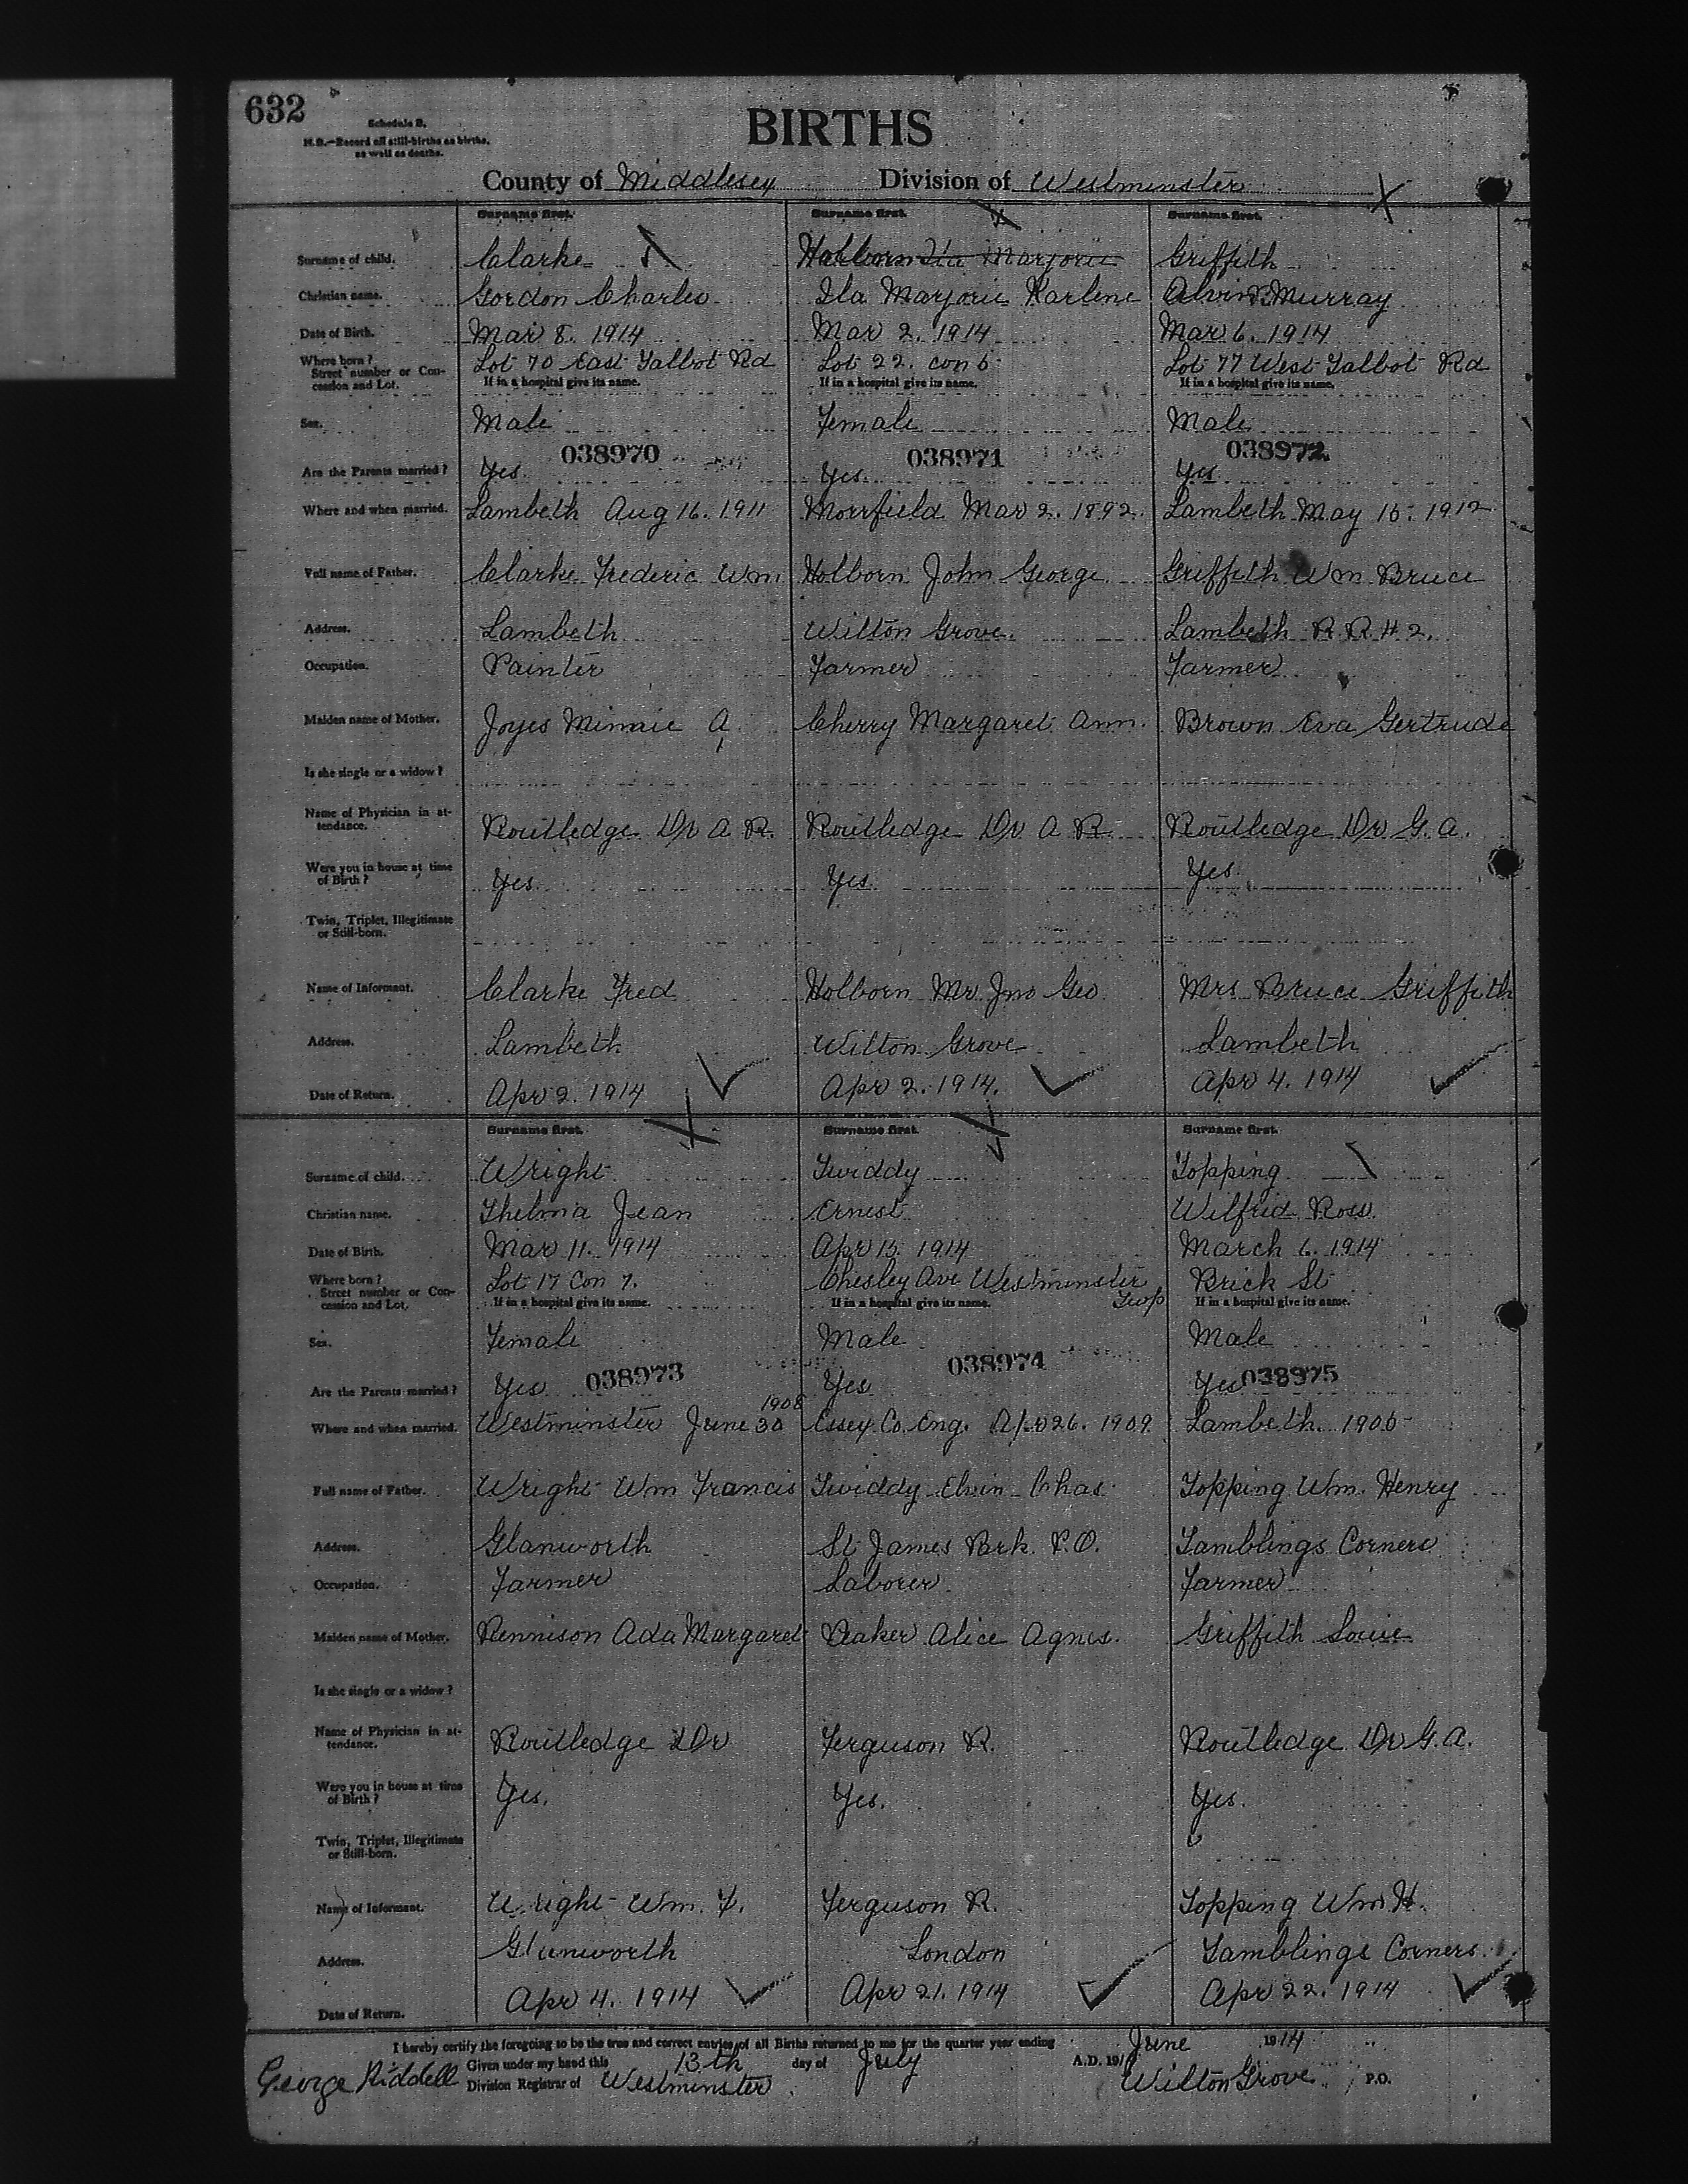 632
Schedule B.
N.B.—Record all still-births as births, as well as deaths.
BIRTHS
County of Middlesex Division of Westminster
Surname first. Surname first. Surname first.
Surname of child. Clarke Holborn Ila Marjorie Griffith
Christian name. Gordon Charles Ila Marjorie Karlene Alvin Murray
Date of Birth. Mar 8. 1914 Mar 2. 1914 Mar 6. 1914
Where born? Street number or Concession and Lot. Lot 70 East Talbot Rd Lot 22. con 6 Lot 77 West Talbot Rd
If in a hospital give its name. If in a hospital give its name. If in a hospital give its name.
Sex. Male Female Male
038970 038971 038972
Are the Parents married? Yes. Yes. Yes
Where and when married. Lambeth Aug 16. 1911 Morrfield Mar 2. 1892. Lambeth May 15. 1912
Full name of Father. Clarke Frederic Wm Holborn John George Griffith Wm Bruce
Address. Lambeth Wilton Grove. Lambeth R. R. # 2.
Occupation. Painter Farmer Farmer
Maiden name of Mother. Joyes Minnie A Cherry Margaret Ann. Brown Eva Gertrude
Is she single or a widow?
Name of Physician in attendance. Routledge Dr A R. Routledge Dr A R. Routledge Dr G. A.
Were you in house at time of Birth? Yes. Yes. Yes.
Twin, Triplet, Illegitimate or Still-born.
Name of Informant. Clarke Fred Holborn Mr Jno Geo Mrs Bruce Griffith
Address. Lambeth Wilton Grove Lambeth
Date of Return. Apr 2. 1914 Apr 2. 1914. Apr 4. 1914
Surname first. Surname first. Surname first.
Surname of child. Wright Twiddy Topping
Christian name. Thelma Jean Ernest Wilfrid Ross
Date of Birth. Mar 11. 1914 Apr 15. 1914 March 6. 1914
Where born? Street number or Concession and Lot. Lot 17 Con 7. Chesley Ave Westminster Twp Brick St
If in a hospital give its name. If in a hospital give its name. If in a hospital give its name.
Sex. Female Male Male
038973 038974 038975
Are the Parents married? Yes Yes Yes
Where and when married. Westminster June 30 1908 Essex Co. Eng. Apr 26. 1909. Lambeth. 1905
Full name of Father. Wright Wm Francis Twiddy Elvin Chas Topping Wm. Henry
Address. Glanworth St James Park P.O. Tamblings Corners
Occupation. Farmer Laborer Farmer
Maiden name of Mother. Rennison Ada Margaret Alice Agnes. Griffith Louie
Is she single or a widow?
Name of Physician in attendance. Routledge Dr Ferguson R. Routledge Dr G. A.
Were you in house at time of Birth? Yes. Yes. Yes.
Twin, Triplet, Illegitimate or Still-born.
Name of Informant. Wright Wm. F. Ferguson R. Topping Wm H.
Address. Glanworth London Tamblings Corners.
Date of Return. Apr 4. 1914 Apr 21. 1914 Apr 22. 1914
I hereby certify the foregoing to be the true and correct entries of all Births returned to me for the quarter year ending June 1914
Given under my hand this 13th day of July A.D. 191
George Riddell Division Registrar of Westminster Wilton Grove P.O.